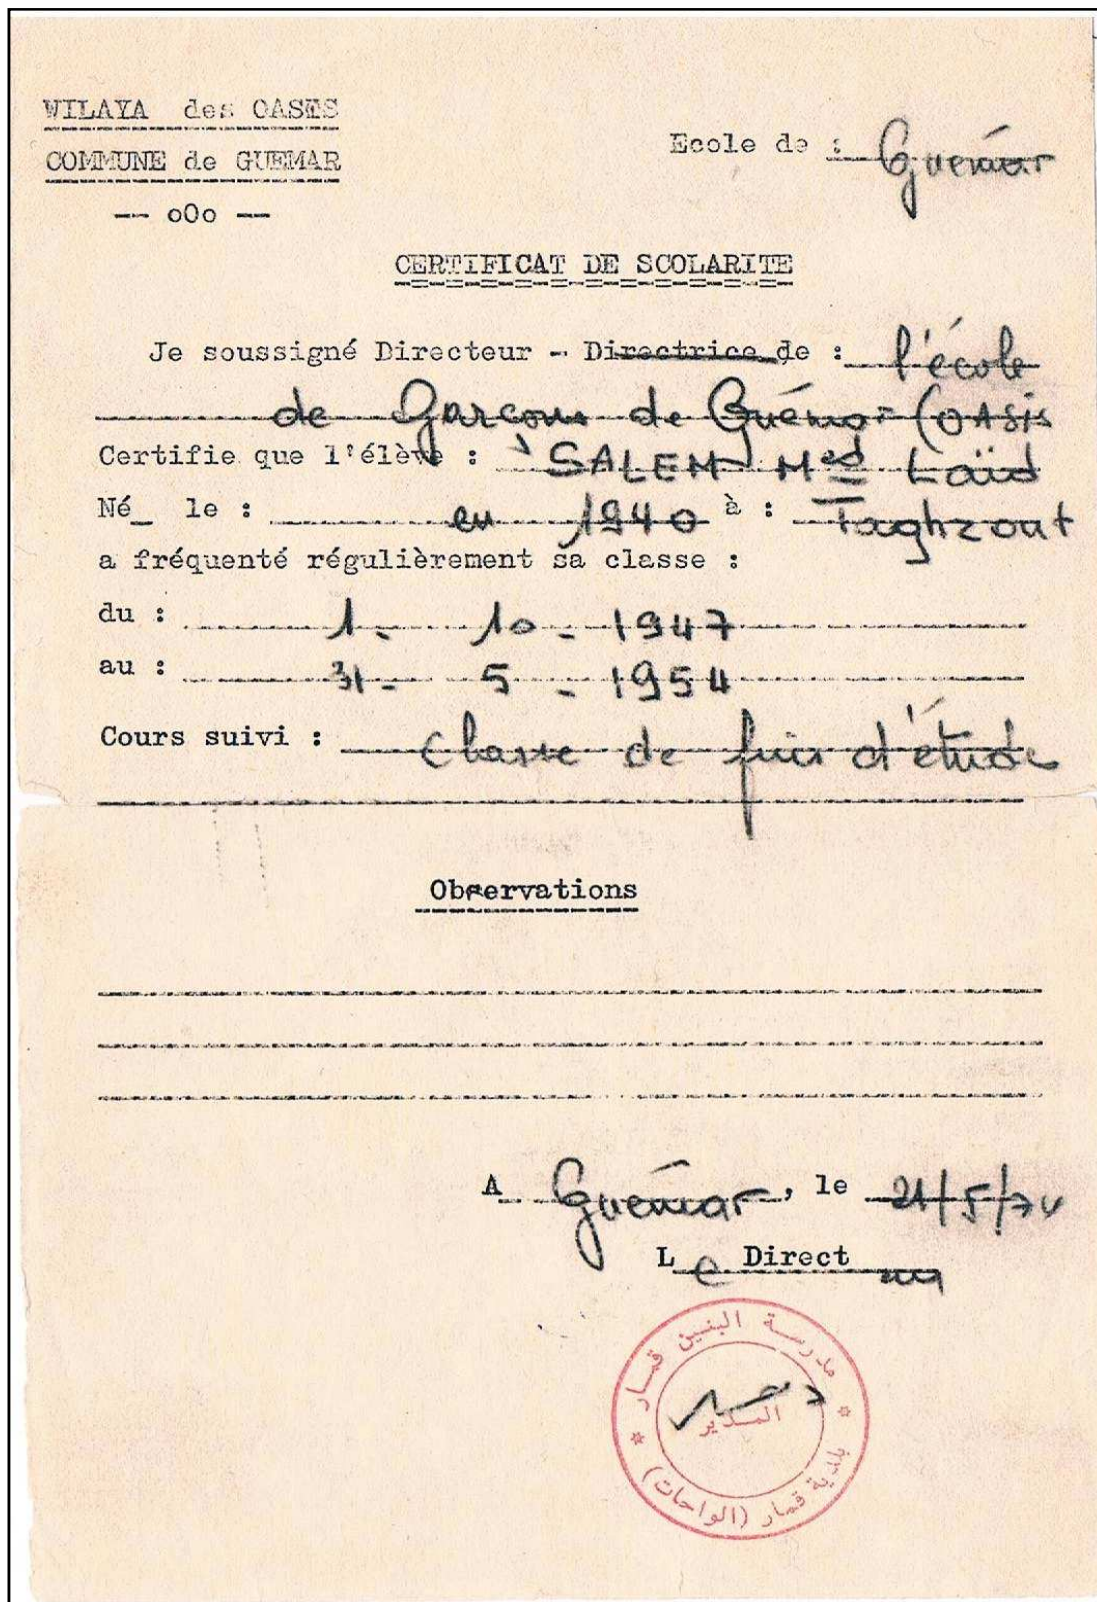 WILAYA des OASES
COMMUNE de GUEMAR
-- oOo --
Ecole de : Guémar
CERTIFICAT DE SCOLARITE
Je soussigné Directeur - Directrice de : l'école
de Garçons de Guémar (OASIS
Certifie que l'élève : SALEM Med Laïd
Né_ le : en 1940 à : Taghzout
a fréquenté régulièrement sa classe :
du : 1 - 10 - 1947
au : 31 - 5 - 1954
Cours suivi : Classe de fin d'étude
Observations
A Guémar, le 21/5/74
Le Directeur
مدرسة البنين قمار
المدير
بلدية قمار (الواحات)